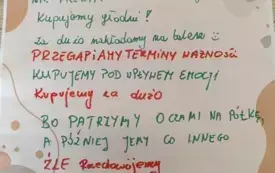 kupujemy głodni!
za dużo nakładamy na talerz
PRZEGAPIAMY TERMINY WAŻNOŚCI
KUPUJEMY POD WPŁYWEM EMOCJI
Kupujemy za dużo
BO PATRZYMY OCZAMI NA PÓŁKĘ,
A PÓŹNIEJ JEMY CO INNEGO
ŹLE Przechowujemy